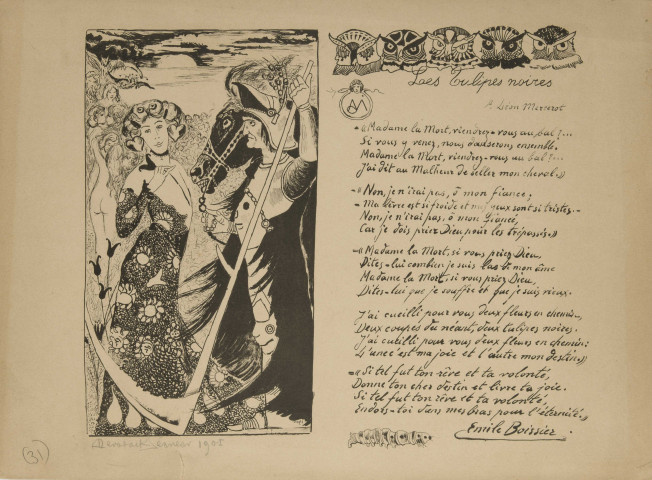 Les Tulipes noires
A Léon Marcerot
AM
– « Madame la Mort, viendrez-vous au bal ?...
Si vous y venez, nous danserons ensemble.
Madame la Mort, viendrez-vous au bal ?...
J'ai dit au Malheur de seller mon cheval. »
– « Non, je n'irai pas, ô mon fiancé ;
– Ma lèvre est si froide et mes yeux sont si tristes. –
Non, je n'irai pas, ô mon fiancé,
Car je dois prier Dieu pour les trépassés. »
– « Madame la Mort, si vous priez Dieu,
Dites-lui combien je suis las mon âme
Madame la Mort, si vous priez Dieu,
Dites-lui que je souffre et que je suis vieux.
J'ai cueilli pour vous deux fleurs en chemin,
Deux coupes du néant, deux tulipes noires.
J'ai cueilli pour vous deux fleurs en chemin :
L'une est ma joie et l'autre mon destin. »
– « Si tel fut ton rêve et ta volonté,
Donne ton cher destin et livre ta joie.
Si tel fut ton rêve et ta volonté,
Endors-toi dans mes bras pour l'éternité. »
Emile Boissier.
1905
(31)